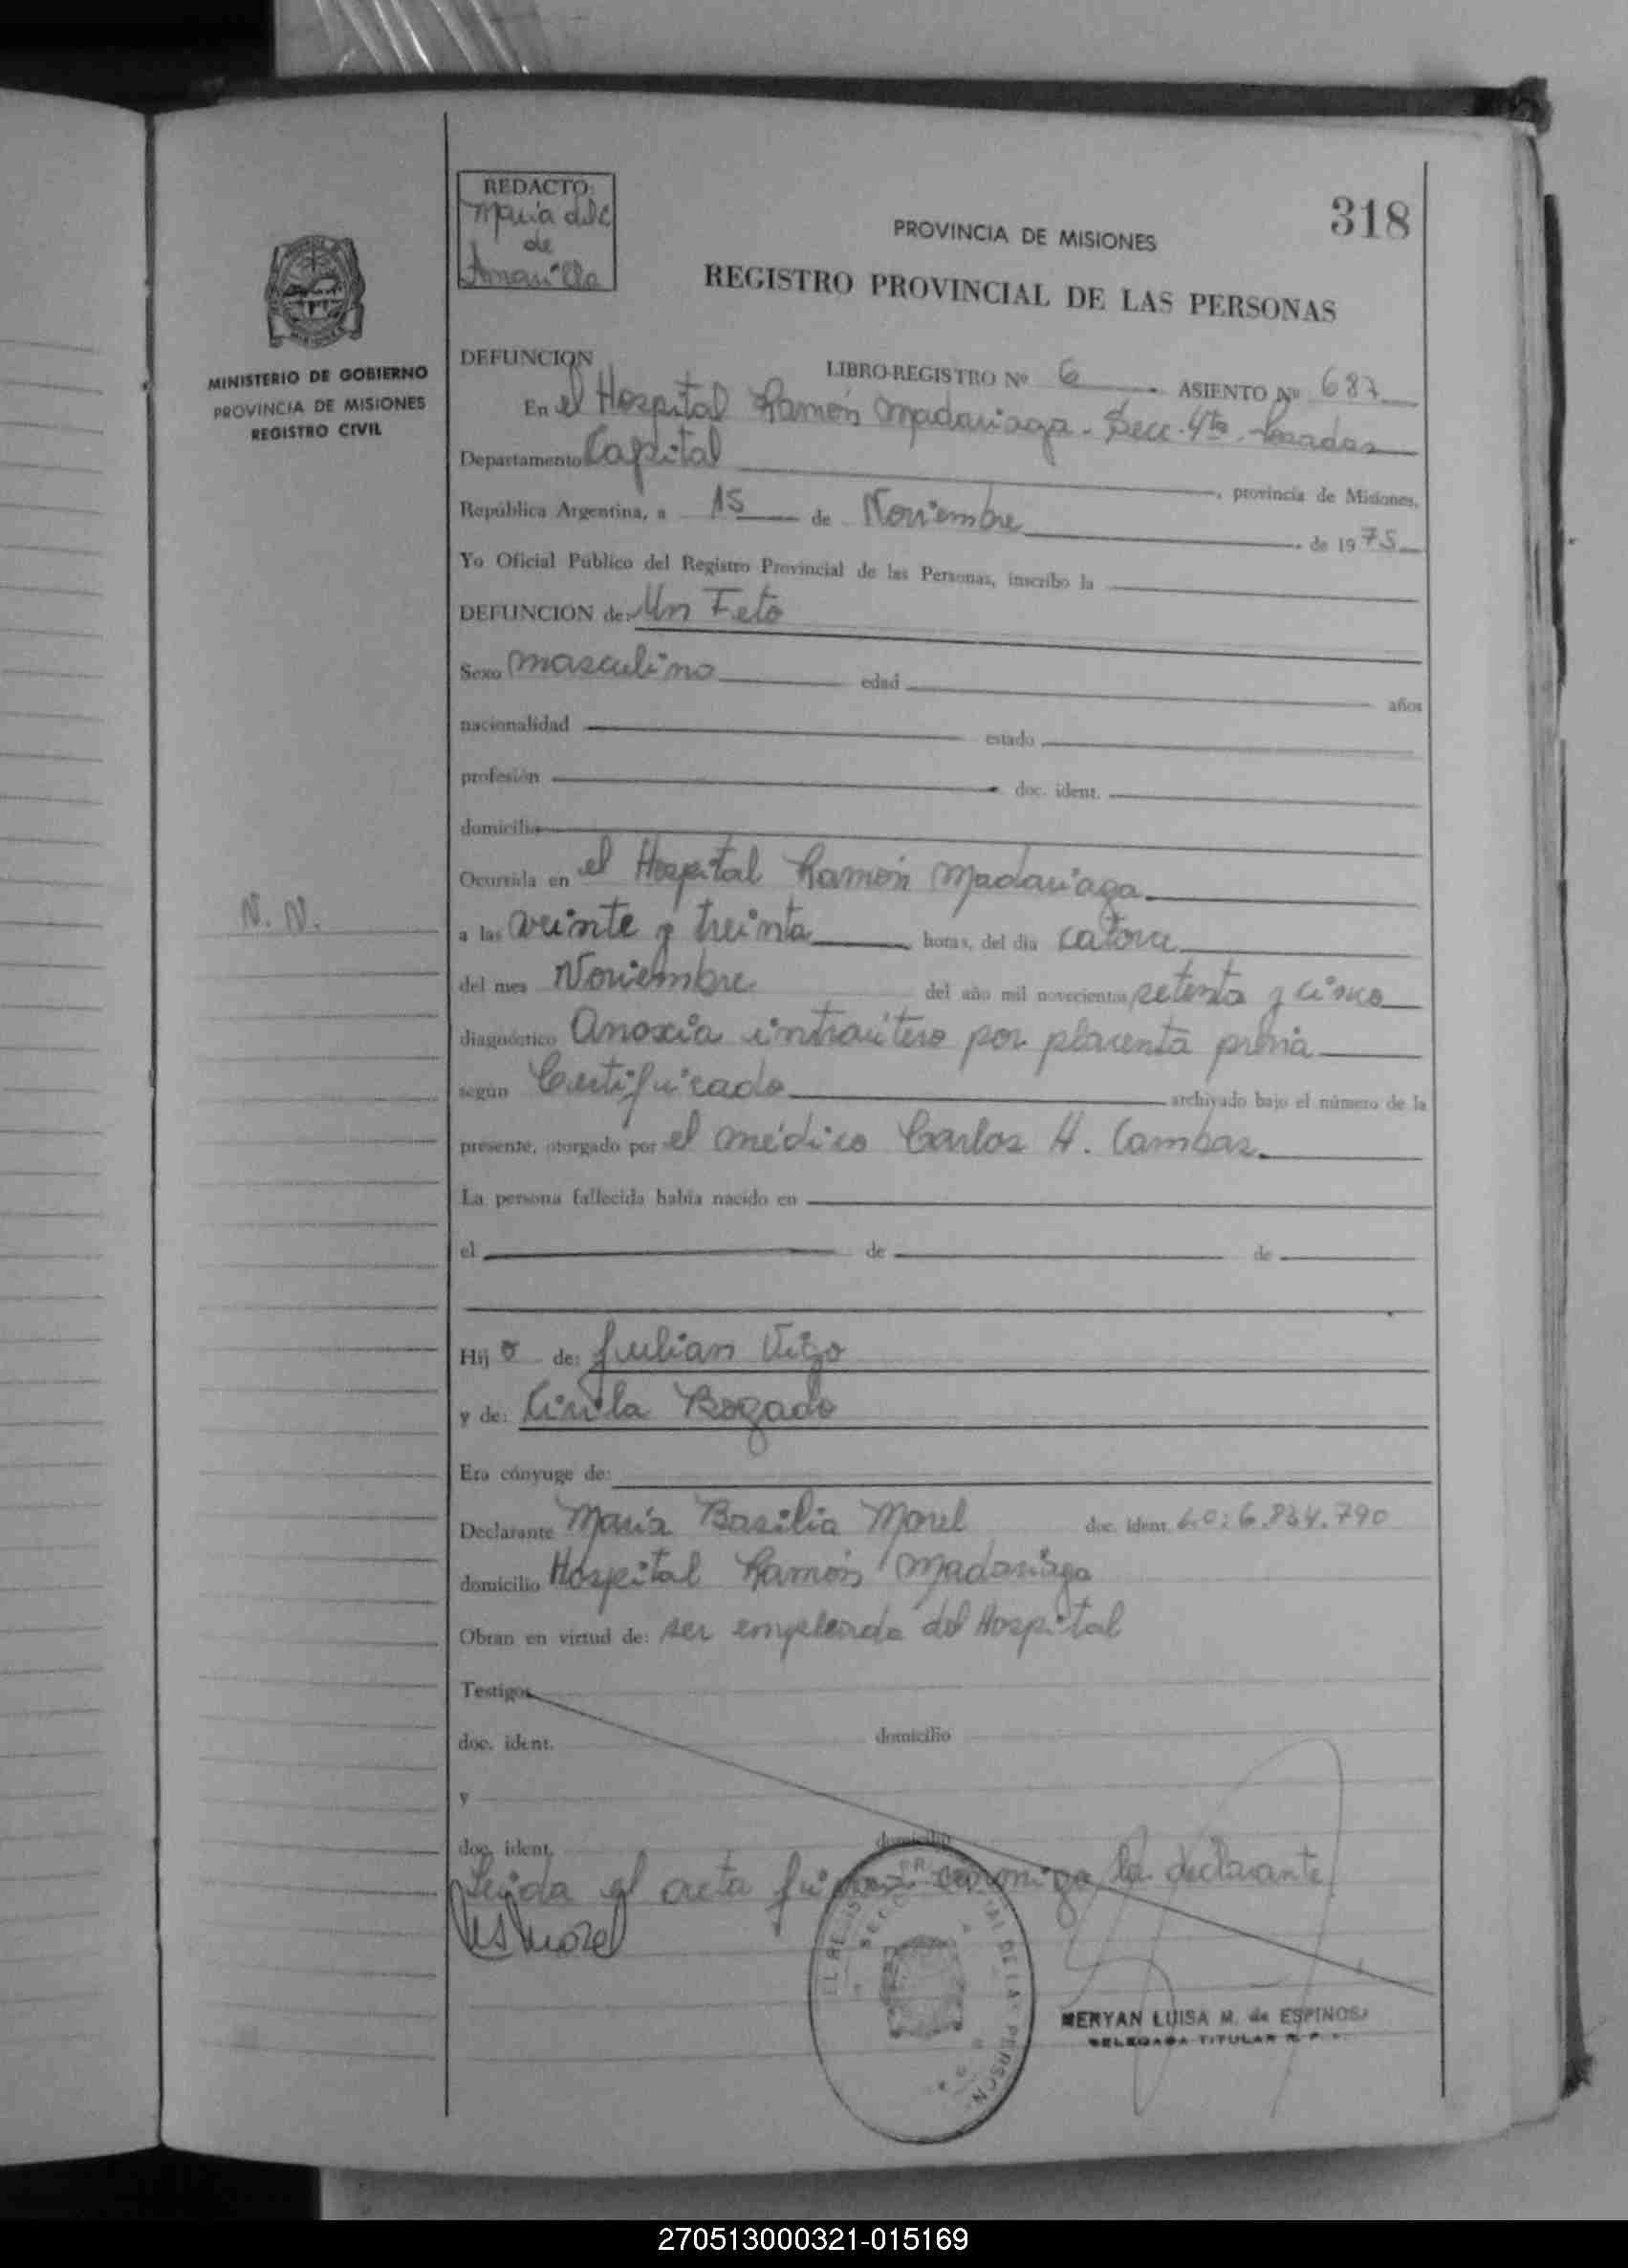 REDACTO:
Maria del C
de
Amarilla
318
PROVINCIA DE MISIONES
REGISTRO PROVINCIAL DE LAS PERSONAS
MINISTERIO DE GOBIERNO
PROVINCIA DE MISIONES
REGISTRO CIVIL
DEFUNCION
LIBRO-REGISTRO Nº 6 ASIENTO Nº 687
En el Hospital Ramón Madariaga - Secc. 4ta. Posadas
Departamento Capital, provincia de Misiones,
República Argentina, a 15 de Noviembre de 1975
Yo Oficial Público del Registro Provincial de las Personas, inscribo la
DEFUNCION de: Un Feto
Sexo masculino edad años
nacionalidad estado
profesión doc. ident.
domicilio
Ocurrida en el Hospital Ramón Madariaga
N. N.
a las veinte y treinta horas, del día catorce
del mes Noviembre del año mil novecientos setenta y cinco
diagnóstico Anoxia intraútero por placenta previa
según Certificado archivado bajo el número de la
presente, otorgado por el médico Carlos H. Cambas
La persona fallecida había nacido en
el de de
Hijo de: Julian Vigo
y de: Cirila Bogado
Era cónyuge de:
Declarante María Basilia Morel doc. ident. 6.834.790
domicilio Hospital Ramón Madariaga
Obran en virtud de: ser empleada del Hospital
Testigos
doc. ident. domicilio
y
doc. ident. domicilio
Leida el acta conmigo la declarante
Morel
MERYAN LUISA M. de ESPINOSA
DELEGADA TITULAR R. P.
270513000321-015169